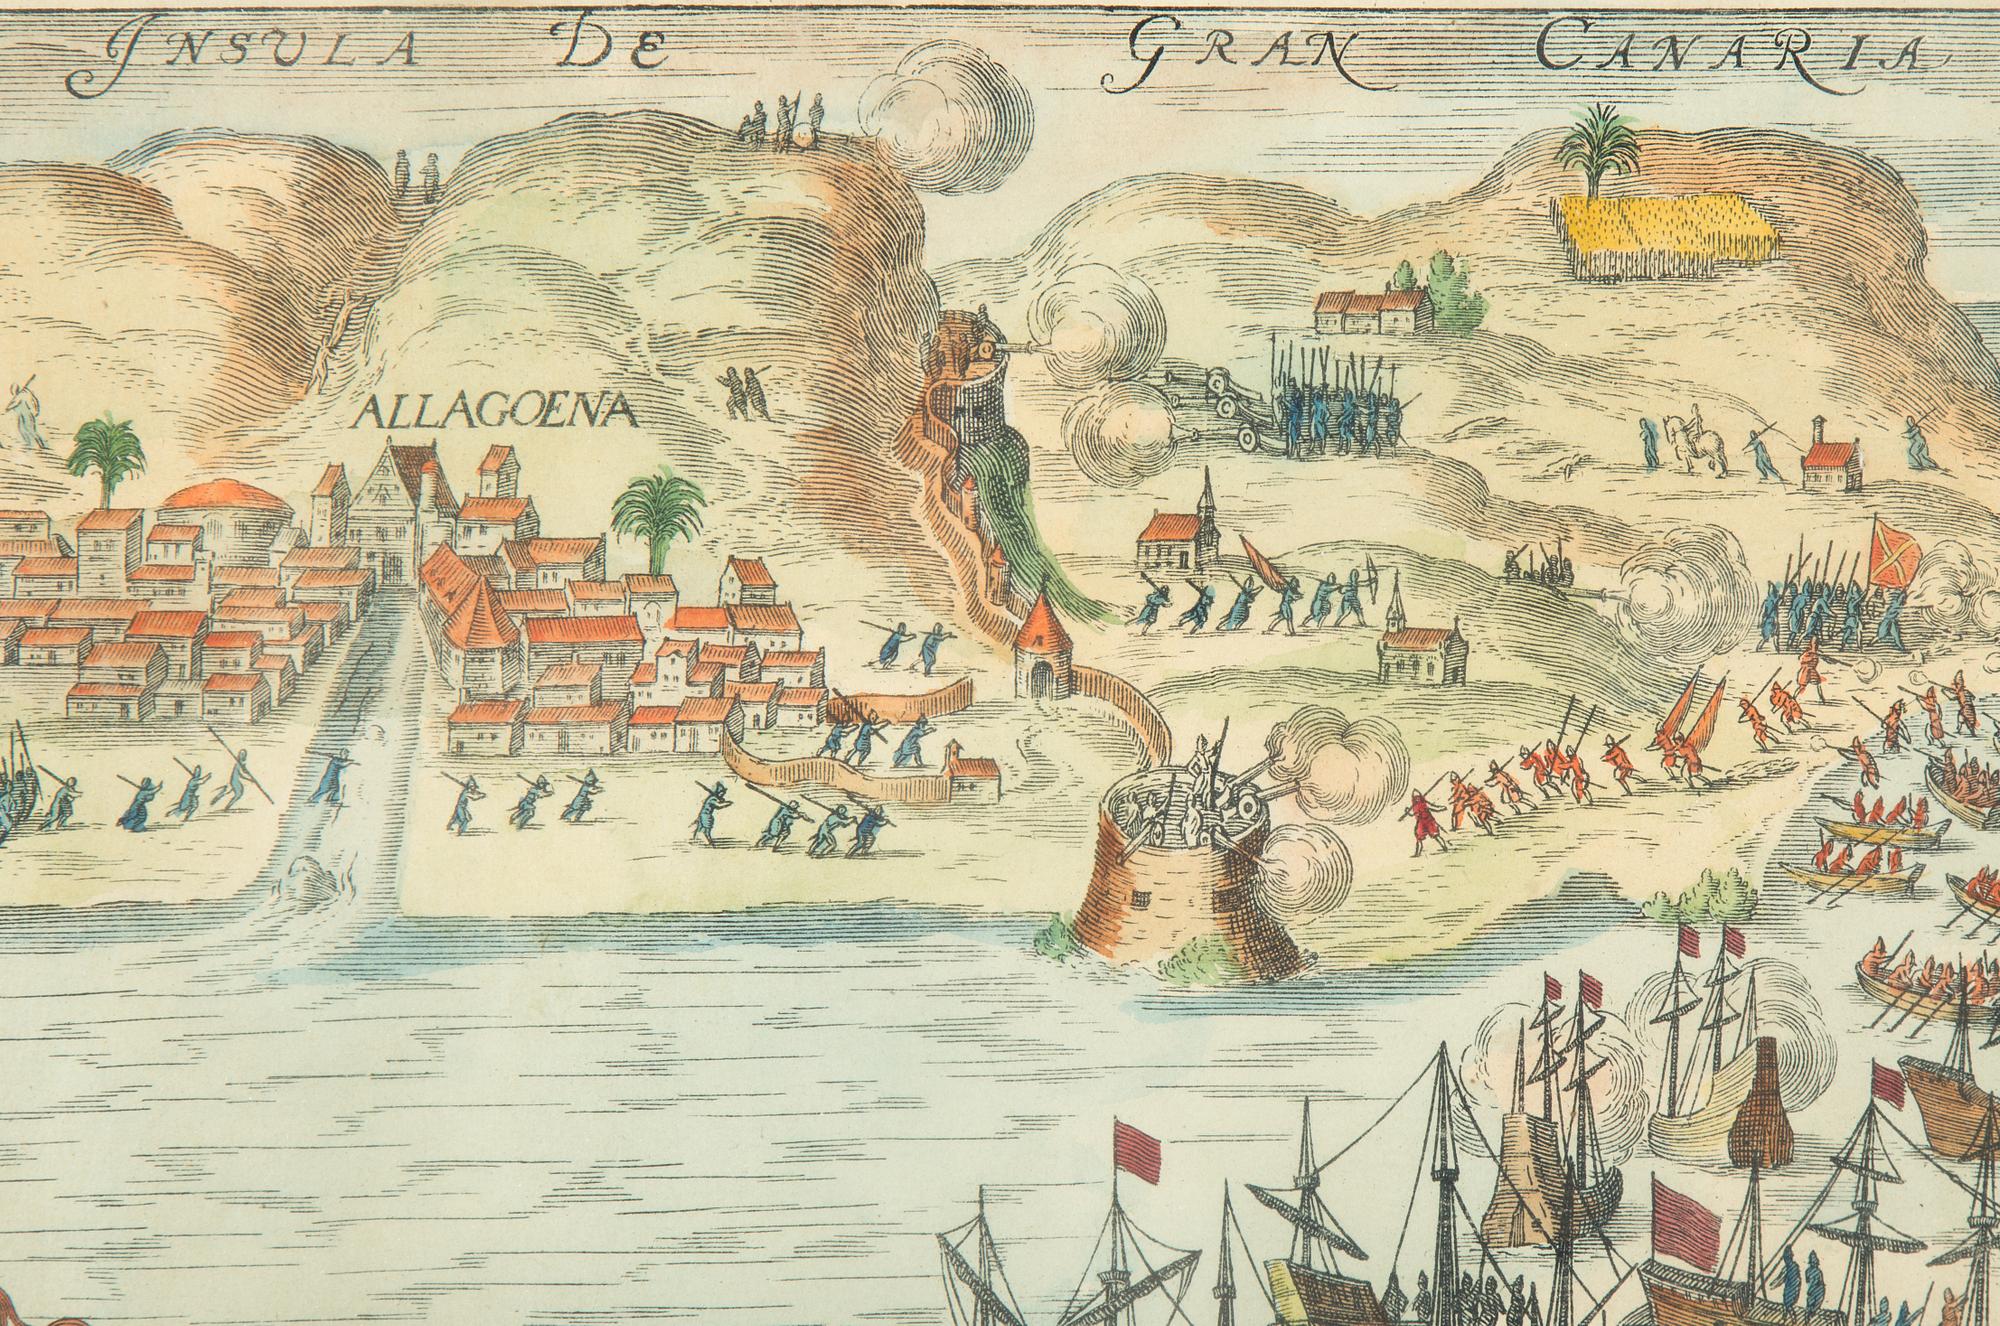 INSULA DE GRAN CANARIA
ALLAGOENA